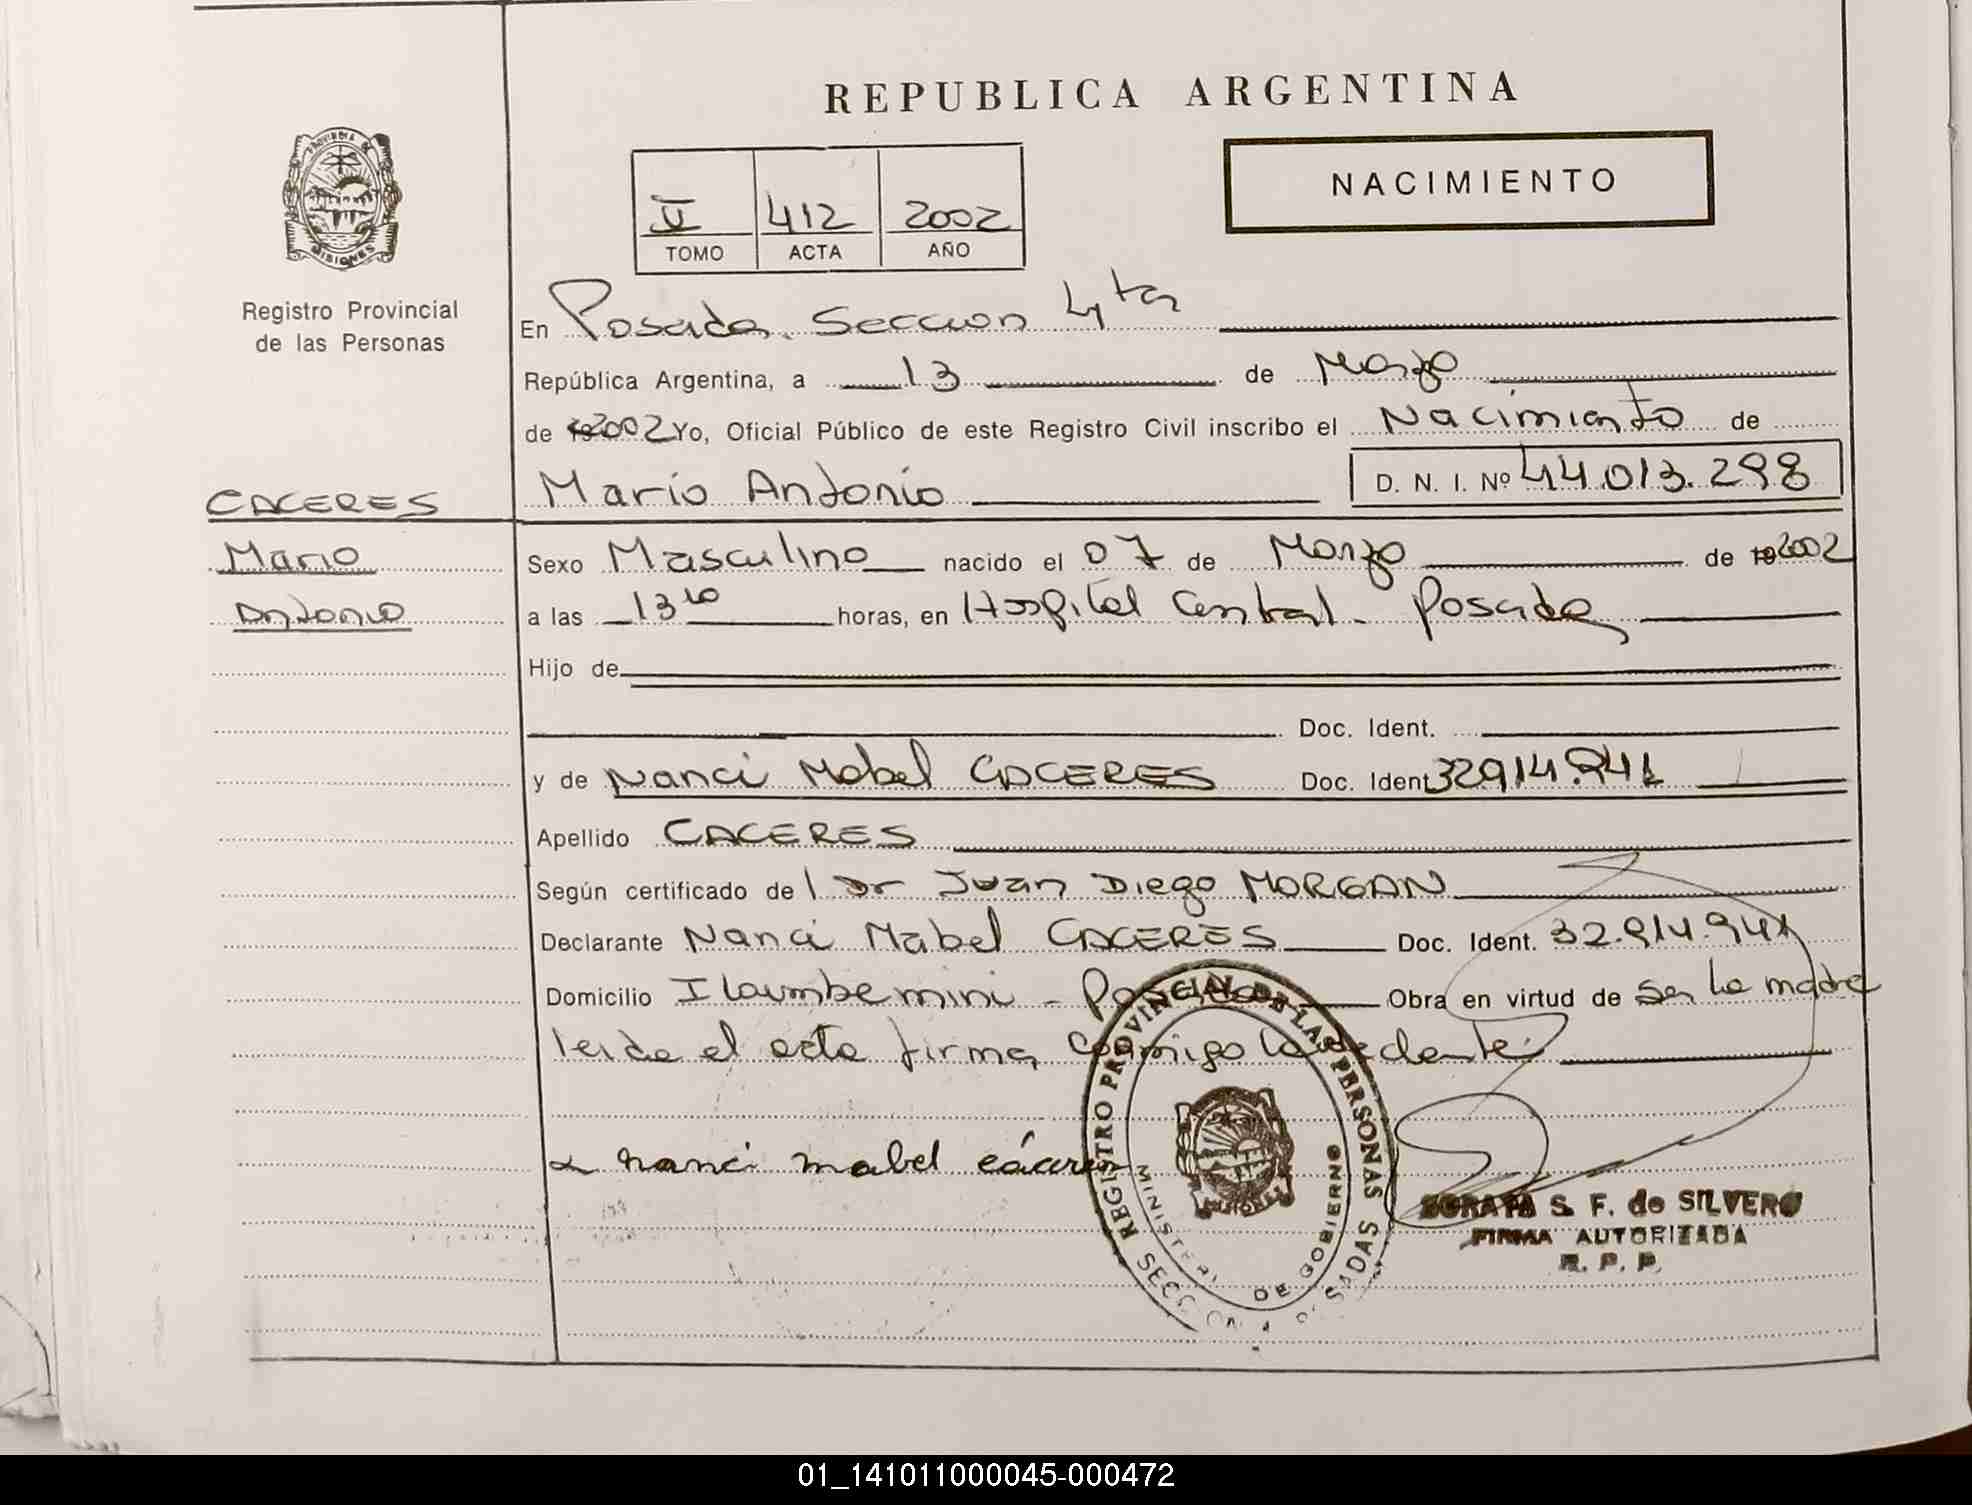 REPUBLICA ARGENTINA
PROVINCIA DE
MISIONES
Registro Provincial
de las Personas
NACIMIENTO
V 412 2002
TOMO ACTA AÑO
En Posadas Seccion 4ta
República Argentina, a 13 de Marzo
de 2002 Yo, Oficial Público de este Registro Civil inscribo el Nacimiento de
CACERES
Mario Antonio D. N. I. Nº 44.013.298
Mario
Sexo Masculino nacido el 07 de Marzo de 2002
Antonio
a las 13 10 horas, en Hospital Central - Posadas
Hijo de
Doc. Ident.
y de Nanci Mabel CACERES Doc. Ident. 32914.941
Apellido CACERES
Según certificado del Dr Juan Diego MORGAN
Declarante Nanci Mabel CACERES Doc. Ident. 32.914.941
Domicilio Posadas Obra en virtud de ser la madre
leida el acta firma conmigo la declante
nanci mabel cáceres
REGISTRO PROVINCIAL DE LAS PERSONAS
SECCION 4 POSADAS
MINISTERIO DE GOBIERNO
MISIONES
S. F. de SILVERO
FIRMA AUTORIZADA
R. P. P.
01_141011000045-000472